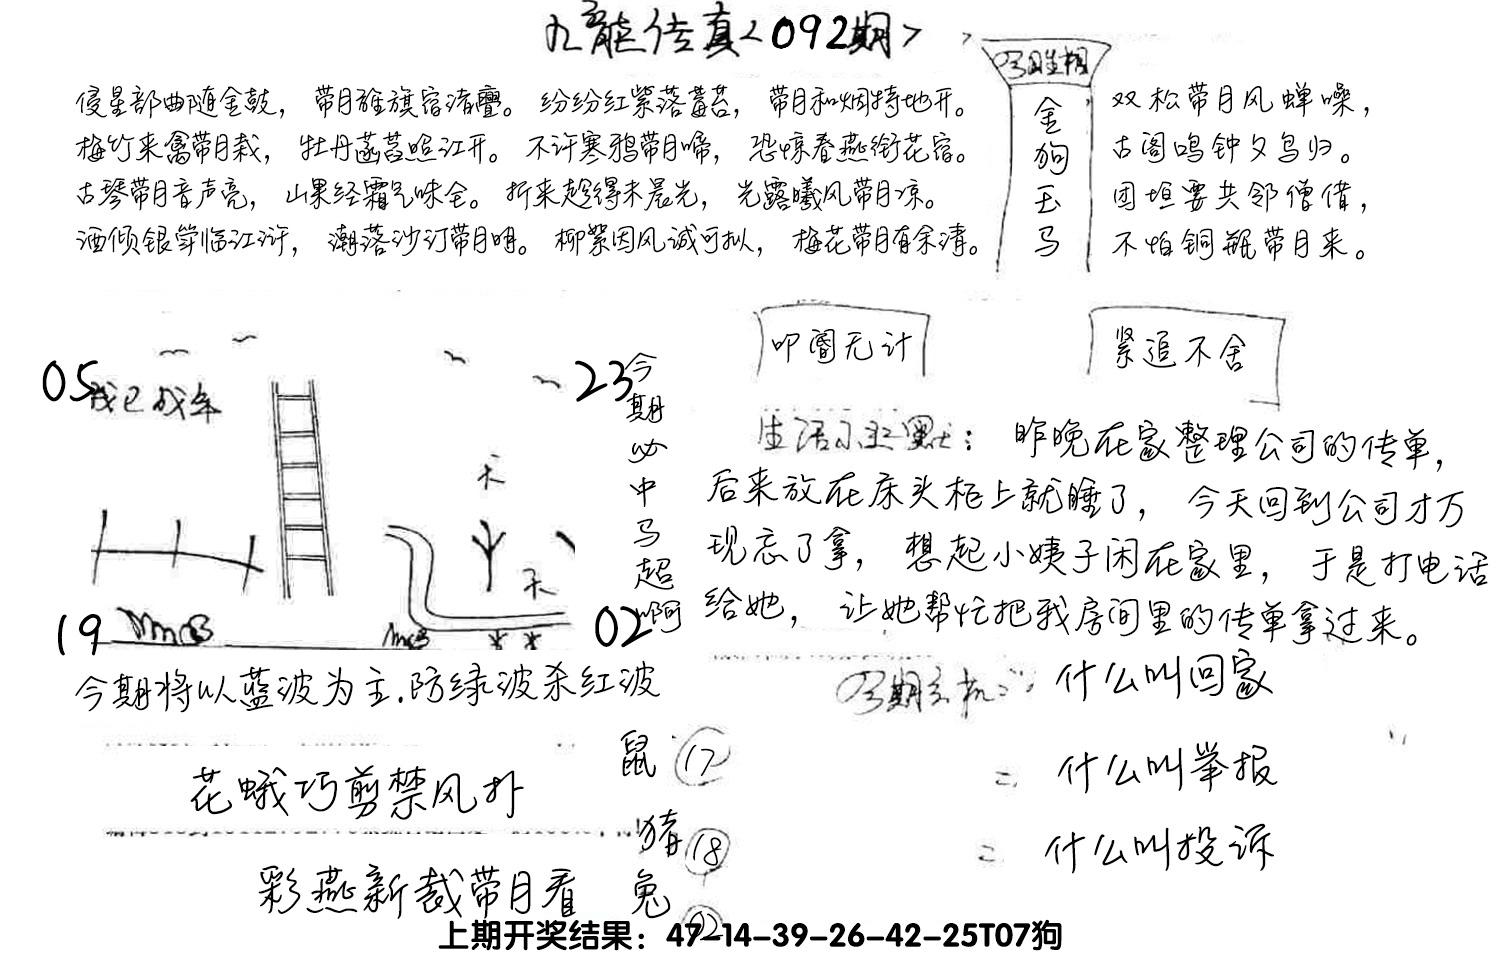 九龍传真<092期>
侵星部曲随金鼓，带月旌旗宿渚亹。纷纷红紫落蓦苔，带月和烟特地开。
梅竹来禽带月栽，牡丹菡萏照江开。不许寒鸦带月啼，恐惊春燕衔花宿。
古琴带月音声亮，山果经霜气味全。折来趁得未晨光，光露曦风带月凉。
酒倾银字临江浒，潮落沙汀带月明。柳絮因风诚可拟，梅花带月有余清。
今期生相
金
狗
玉
马
双松带月风蝉噪，
古阁鸣钟夕鸟归。
团垣要共邻僧借，
不怕铜瓶带月来。
叩阍无计
紧追不舍
05
23
19
02
今期必中马超啊
今期将以蓝波为主.防绿波杀红波
生活幽默：昨晚在家整理公司的传单，
后来放在床头柜上就睡了，今天回到公司才万
现忘了拿，想起小姨子闲在家里，于是打电话
给她，让她帮忙把我房间里的传单拿过来。
今期玄机：什么叫回家
二 什么叫举报
二 什么叫投诉
花蛾巧剪禁风扑
彩燕新裁带月看
鼠 17
猪 18
兔 02
上期开奖结果：47-14-39-26-42-25T07狗